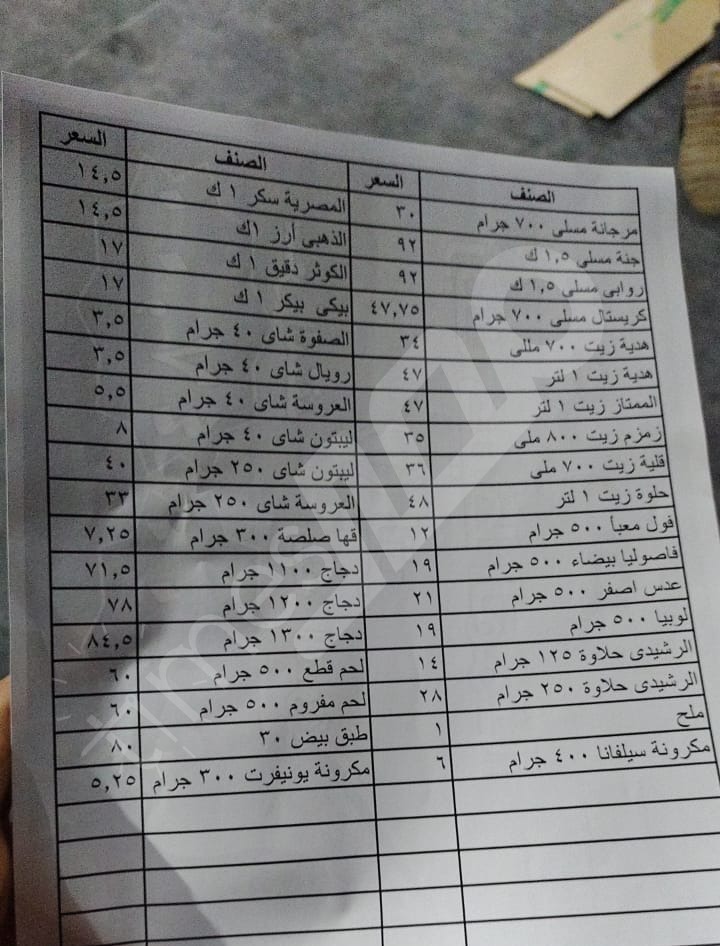 الصنف السعر الصنف السعر
مرجانة مسلى ٧٠٠ جرام ٣٠ المصرية سكر ١ ك ١٤,٥
جنة مسلى ١,٥ ك ٩٢ الذهبى أرز ١ك ١٤,٥
روابى مسلى ١,٥ ك ٩٢ الكوثر دقيق ١ ك ١٧
كريستال مسلى ٧٠٠ جرام ٤٧,٧٥ بيكى بيكر ١ ك ١٧
هدية زيت ٧٠٠ مللى ٣٤ الصفوة شاى ٤٠ جرام ٣,٥
هدية زيت ١ لتر ٤٧ رويال شاى ٤٠ جرام ٣,٥
الممتاز زيت ١ لتر ٤٧ العروسة شاى ٤٠ جرام ٥,٥
زمزم زيت ٨٠٠ ملى ٣٥ ليبتون شاى ٤٠ جرام ٨
قلية زيت ٧٠٠ ملى ٣٦ ليبتون شاى ٢٥٠ جرام ٤٠
حلوة زيت ١ لتر ٤٨ العروسة شاى ٢٥٠ جرام ٣٣
فول معبأ ٥٠٠ جرام ١٢ قها صلصة ٣٠٠ جرام ٧,٢٥
فاصوليا بيضاء ٥٠٠ جرام ١٩ دجاج ١١٠٠ جرام ٧١,٥
عدس اصفر ٥٠٠ جرام ٢١ دجاج ١٢٠٠ جرام ٧٨
لوبيا ٥٠٠ جرام ١٩ دجاج ١٣٠٠ جرام ٨٤,٥
الرشيدى حلاوة ١٢٥ جرام ١٤ لحم قطع ٥٠٠ جرام ٦٠
الرشيدى حلاوة ٢٥٠ جرام ٢٨ لحم مفروم ٥٠٠ جرام ٦٠
ملح ١ طبق بيض ٣٠ ٨٠
مكرونة سيلفانا ٤٠٠ جرام ٦ مكرونة يونيفرت ٣٠٠ جرام ٥,٢٥